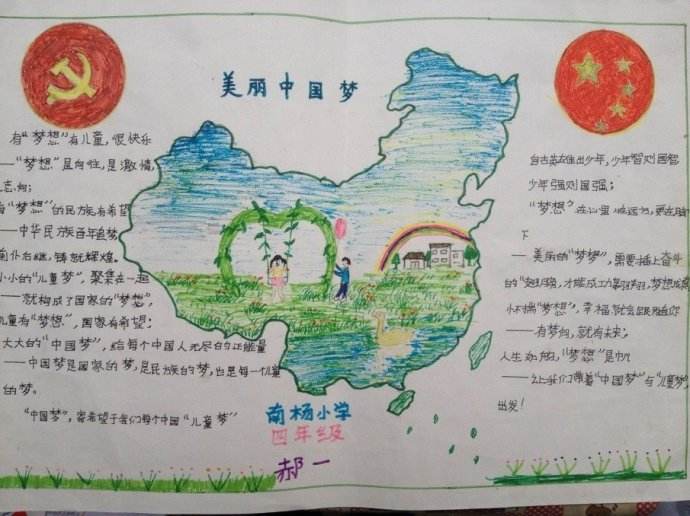 美丽中国梦
有“梦想”有儿童，很快乐
——“梦想”是向往，是激情，
志向；
有“梦想”的民族有希望
——中华民族百年追梦
前仆后继，铸就辉煌。
小小的“儿童梦”，聚集在一起
——就构成了国家的“梦想”，
儿童有“梦想”，国家有希望；
大大的“中国梦”，给每个中国人无尽的正能量
——中国梦是国家的梦，是民族的梦，也是每一个儿童
的梦。
“中国梦”，寄希望于我们每个中国“儿童梦”
自古英雄出少年，少年智则国智
少年强则国强；
“梦想”在心里
下
——美丽的“梦想”，需要插上奋斗
的“翅膀，才能成功
“梦想”，幸福，就会跟随你
——有梦向，就有未来；
人生“梦想”是帆
——让我们带着“中国梦”与“儿童梦”，
出发！
南杨小学
四年级
郝一